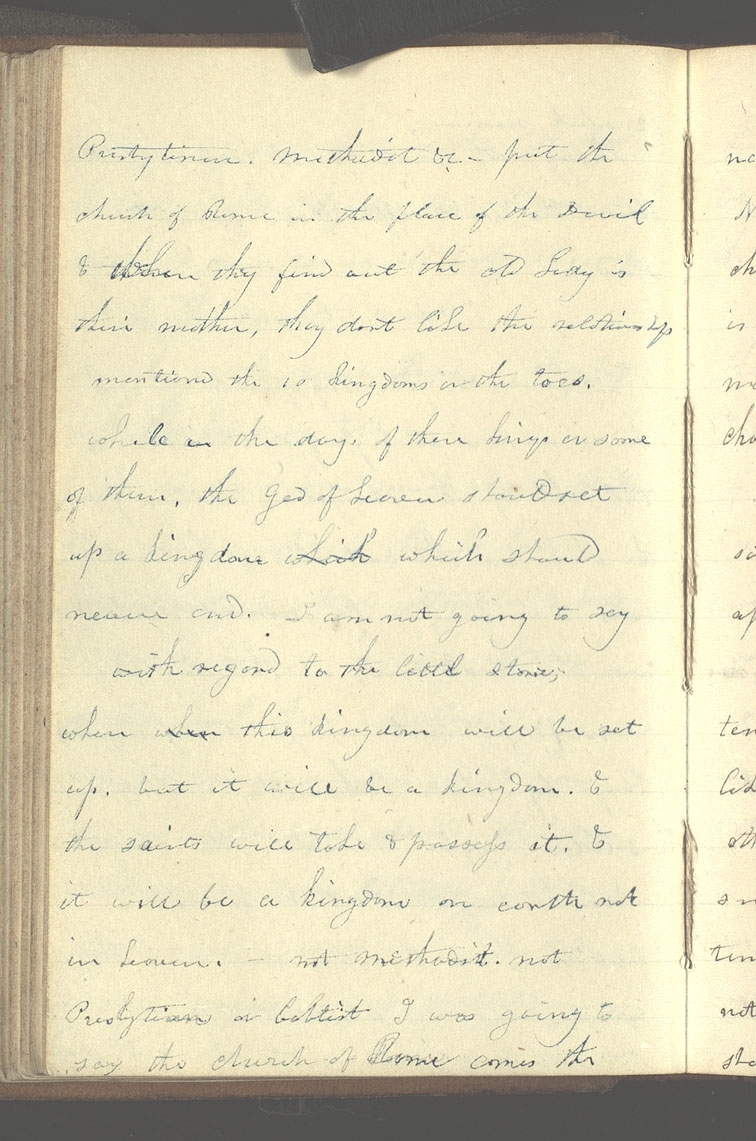 Presbyterian. methodist &c - put the
church of Rome in the place of the devil
& when they find out the old Lady is
their mother, they dont like the relationship
mentiond the 10 kingdoms or the toes.
while in the days of these kings or some
of them, the God of heaven should set
up a kingdom which which should
never end. I am not going to say
with regard to the little stone,
when when this kingdom will be set
up. but it will be a kingdom. &
the saints will take & possess it. &
it will be a kingdom on earth not
in heaven. - not methodist. not
Presbytian or babtist I was going to
say the church of Rome comes the
na
N
ch
is
me
cha
si
ap
ten
lid
oth
sm
ten
not
sta